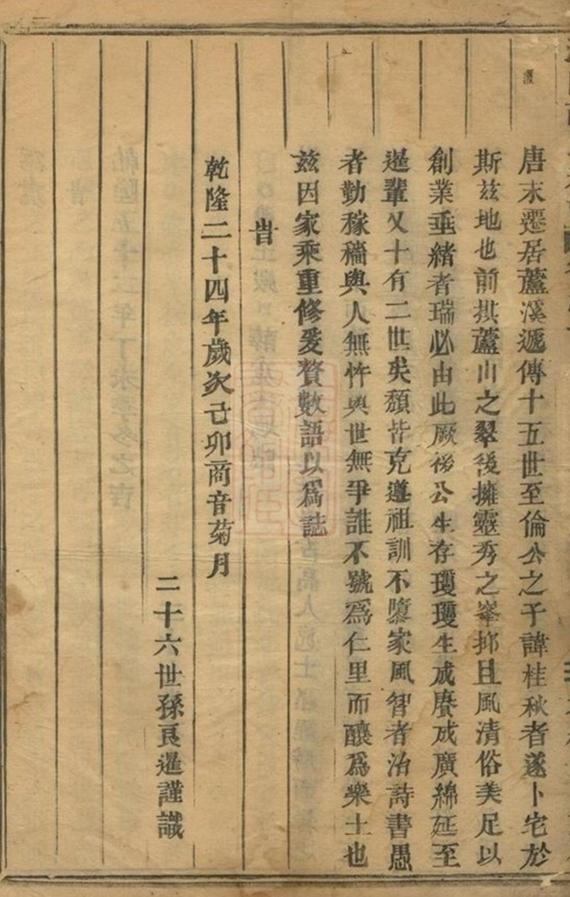 唐末遷居蘆溪遞傳十五世至倫公之子諱桂秋者遂卜宅於
斯茲地也前拱蘆山之翠後擁靈秀之峯抑且風清俗美足以
創業垂緒者瑞必由此厥後公生存瓊瓊生成賡成廣綿延至
暹輩又十有二世矣頽皆克遵祖訓不墮家風智者治詩書愚
者勤稼穡與人無忤與世無爭誰不號爲仁里而釀爲樂土也
茲因家乘重修爰贅數語以爲誌
旹
乾隆二十四年歲次己卯商音菊月
二十六世孫良暹謹識